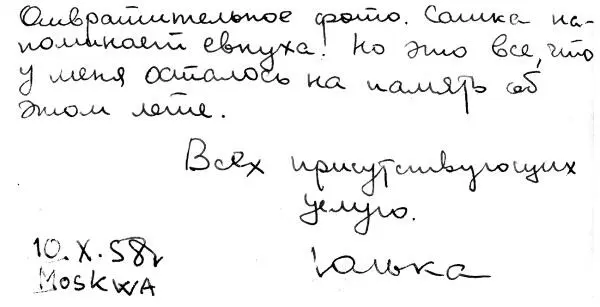 Отвратительное фото. Сашка на-
поминает евнуха! Но это все, что
у меня осталось на память об
этом лете.
Всех присутствующих
целую.
10.X.58г
Moskwa
Юлька